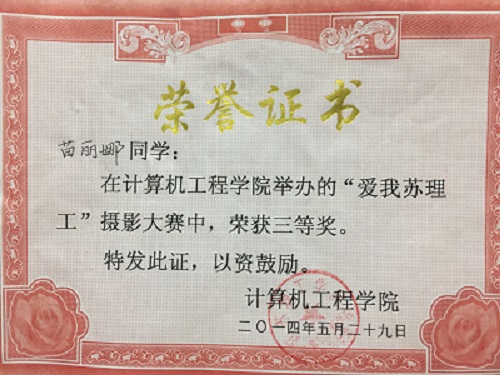 荣誉证书
苗丽娜同学：
在计算机工程学院举办的“爱我苏理
工”摄影大赛中，荣获三等奖。
特发此证，以资鼓励。
计算机工程学院
二〇一四年五月二十九日